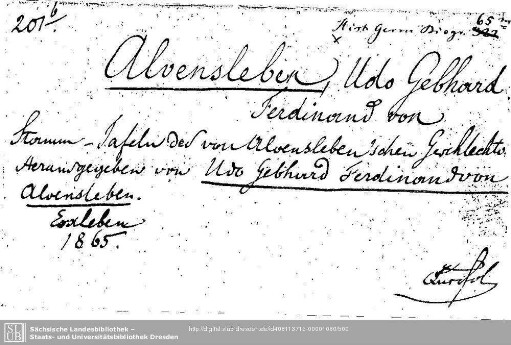 201 b.
Hist. Germ. Biogr. 65 m
Alvensleben, Udo Gebhard
Ferdinand von
Stamm-Tafeln des von Alvensleben'schen Geschlechts.
Herausgegeben von Udo Gebhard Ferdinand von
Alvensleben.
Erxleben
1865.
Sächsische Landesbibliothek –
Staats- und Universitätsbibliothek Dresden